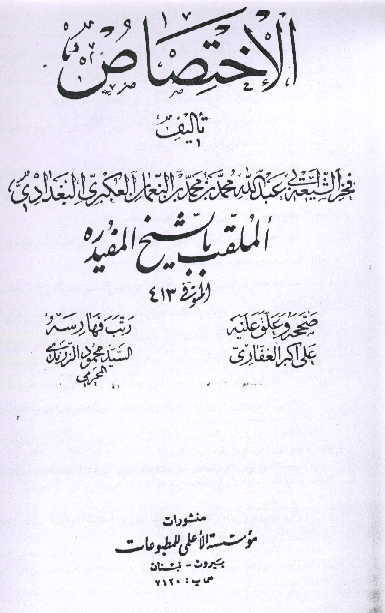 الاختصاص
تأليف
فخر الشيعة أبي عبد الله محمد بن محمد بن النعمان العكبري البغدادي
الملقب بالشيخ المفيد ره
المتوفى ٤١٣
صححه وعلق عليه
علي أكبر الغفاري
رتب فهارسه
السيد محمود الزرندي
المحرمي
منشورات
مؤسسة الأعلمي للمطبوعات
بيروت - لبنان
ص ب : ٧١٢٠